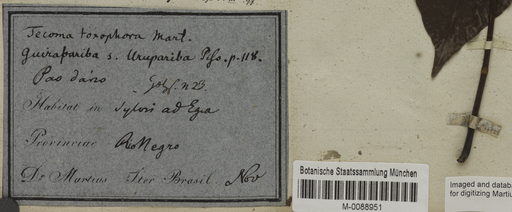 Tecoma toxophora Mart.
Guirapariba s. Urupariba Piso. p. 118.
Pao d'arco
n. 23.
Habitat in Sylvis ad Ega
Provinciae Rio Negro
Dr. Martius Iter Brasil. Nov
Botanische Staatssammlung München
M-0088951
Imaged and databa
for digitizing Martiu